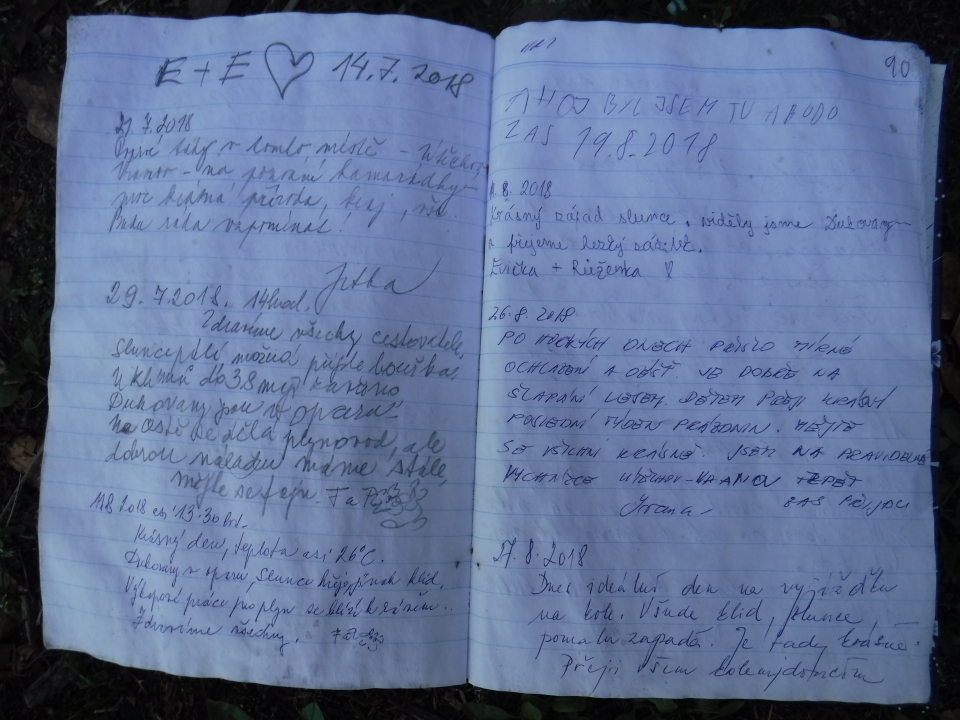 E + E ♡ 14.7.2018
21.7.2018
tady v tomto místě -
- na pozvání kamarádky -
moc krásná příroda, kraj,
Budu ráda vzpomínat!
Jitka
29.7.2018. 14hod.
Zdravíme všechny cestovatele,
Slunce pálí možná přijde bouřka.
Dukovany jsou v oparu
se dělá plynovod, ale
dobrou náladu máme stále,
mějte se fajn.
11.8 2018 13.30
Krásný den, teplota asi 26°C.
Dukovany v oparu, Slunce klid.
Výkopové práce pro plyn se blíží k
Zdravíme všechny.
90
AHOJ BYL JSEM TU
ZAS 19.8.2018
8. 2018
Krásný západ slunce, viděly jsme Dukovany
a přejeme hezký zážitek.
Evička + Růženka
26.8. 2018
PO HORKÝCH DNECH PŘIŠLO MÍRNÉ
OCHLAZENÍ A DÉŠŤ. JE DOBŘE NA
ŠLAPÁNÍ LESEM. DĚTEM PŘEJI KRÁSNÝ
POSLEDNÍ TÝDEN PRÁZDNIN. MĚJTE
SE VŠICHNI KRÁSNĚ. JSEM NA PRAVIDELNÉ
VYCHÁZCE ZPĚT
ZAS PŘIJDU
27.8.2018
Dnes ideální den na vyjížďku
na kole. Všude klid, slunce
pomalu zapadá. Je tady krásně.
Přeji všem kolemjdoucím